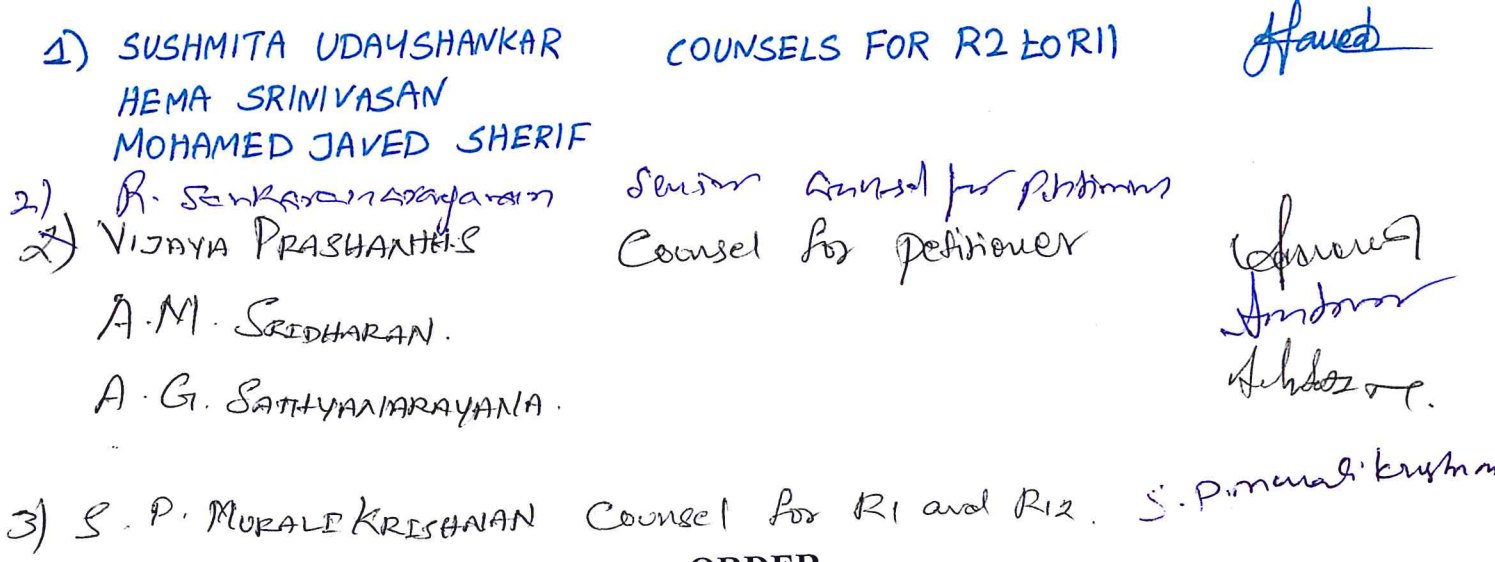 1) SUSHMITA UDAYSHANKAR COUNSELS FOR R2 to R11
HEMA SRINIVASAN
MOHAMED JAVED SHERIF
2) R. Sankaranarayanan Senior Counsel for Petitioners
2) VIJAYA PRASHANTH.S Counsel for petitioner
A.M. SRIDHARAN.
A.G. SATHYANARAYANA.
3) S.P. MURALI KRISHNAN Counsel for R1 and R12. S.P. Murali Krishnan
ORDER